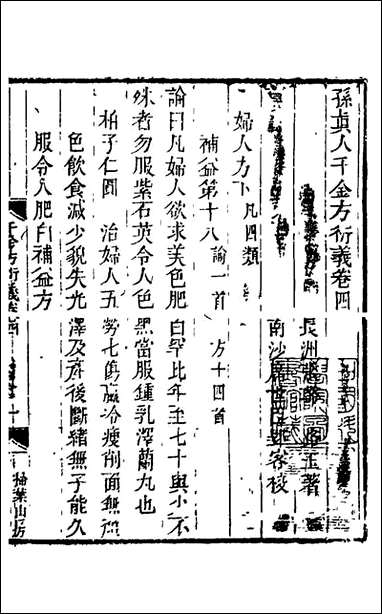 孫真人千金方衍義卷四
長洲 玉著
南沙 客校
婦人方下凡四類
補益第十八 論一首 方十四首
論曰凡婦人欲求美色肥白罕比年至七十與少不
殊者勿服紫石英令人色黑當服鍾乳澤蘭丸也
柏子仁圓 治婦人五勞七傷羸冷瘦削面無
色飲食減少貌失光澤及產後斷緒無子能久
服令人肥白補益方
千金方衍義卷四
掃葉山房